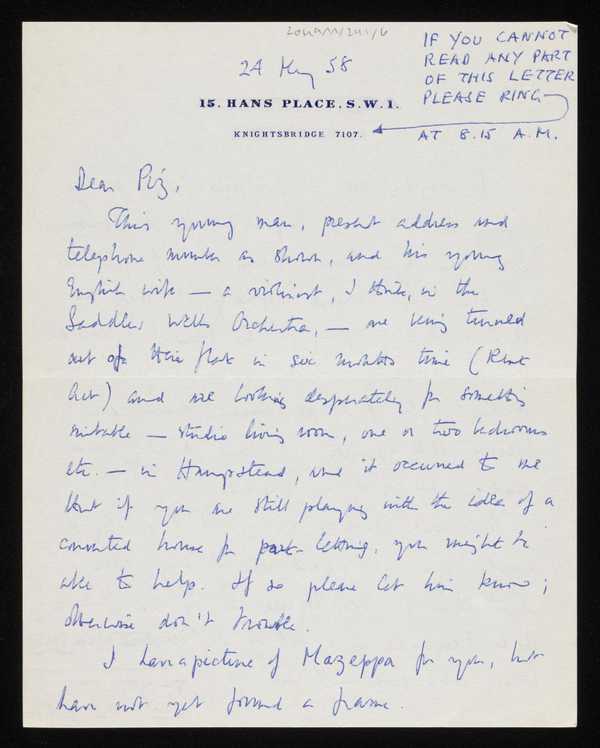 IF YOU CANNOT
READ ANY PART
OF THIS LETTER
PLEASE RING
AT 8.15 A.M.
24 May 58
15. HANS PLACE. S.W.1.
KNIGHTSBRIDGE 7107.
Dear Piz,
This young man, present address and
telephone number as shown, and his young
English wife — a violinist, I think, in the
Saddlers Wells Orchestra, — are being turned
out of their flat in six months time (Rent
Act) and are looking desperately for something
suitable — studio living room, one or two bedrooms
etc. — in Hampstead, and it occurred to me
that if you are still playing with the idea of a
converted house for part-letting, you might be
able to help. If so please let him know;
otherwise don't trouble.
I have a picture of Mazeppa for you, but
have not yet found a frame.